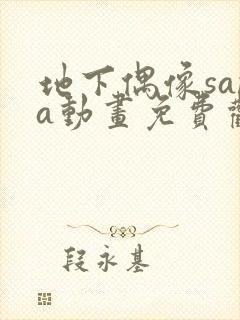 地下偶像sa
a動畫免費
段永基